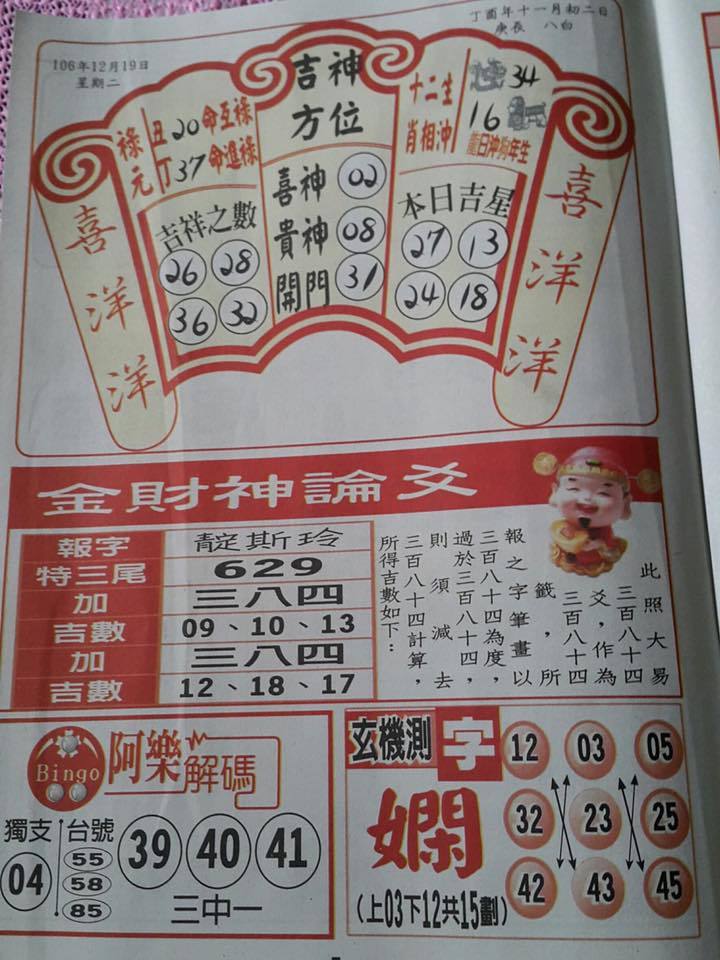 丁酉年十一月初二日
庚辰 八白
106年12月19日
星期二
吉神方位
喜神 02
貴神 08
開門 31
祿元
丑20命互祿
丁37命進祿
吉祥之數
26 28
36 32
十二生肖相冲
34
16
龍日沖狗年生
本日吉星
27 13
24 18
喜洋洋
喜洋洋
金財神論爻
報字 靛斯玲
特三尾 629
加 三八四
吉數 09、10、13
加 三八四
吉數 12、18、17
此照大易
三百八十四
爻，作為
三百八十四
籤，所
報之字筆畫以
三百八十四為度，
過於三百八十四，
則須減去
三百八十四計算，
所得吉數如下：
Bingo
阿樂解碼
獨支
04
台號
55
58
85
39 40 41
三中一
玄機測字
嫻
(上03下12共15劃)
12 03 05
32 23 25
42 43 45